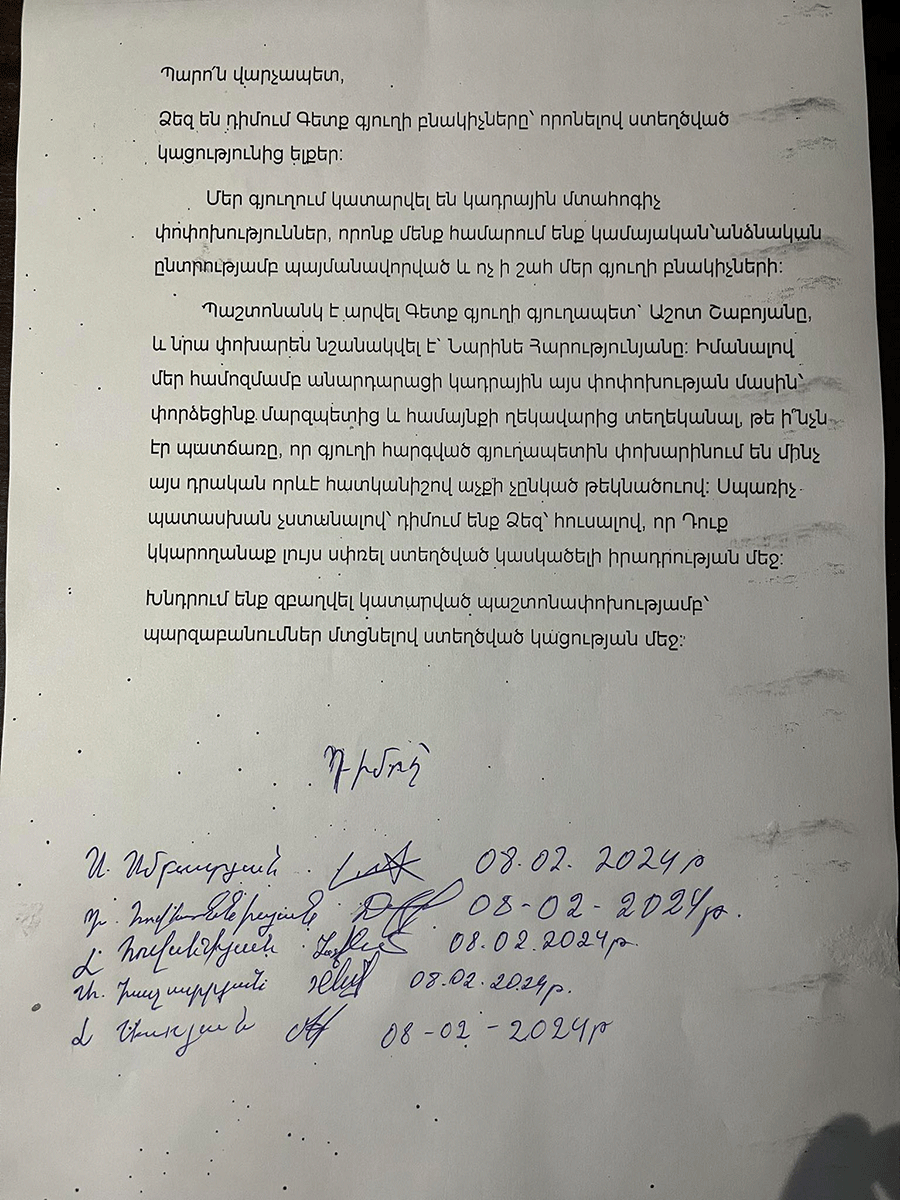 Պարո՛ն վարչապետ,
Ձեզ են դիմում Գետք գյուղի բնակիչները՝ որոնելով ստեղծված
կացությունից ելքեր։
Մեր գյուղում կատարվել են կադրային մտահոգիչ
փոփոխություններ, որոնք մենք համարում ենք կամայական՝անձնական
ընտրությամբ պայմանավորված և ոչ ի շահ մեր գյուղի բնակիչների։
Պաշտոնանկ է արվել Գետք գյուղի գյուղապետ՝ Աշոտ Շաբոյանը,
և նրա փոխարեն նշանակվել է՝ Նարինե Հարությունյանը։ Իմանալով
մեր համոզմամբ անարդարացի կադրային այս փոփոխության մասին՝
փորձեցինք մարզպետից և համայնքի ղեկավարից տեղեկանալ, թե ի՞նչն
էր պատճառը, որ գյուղի հարգված գյուղապետին փոխարինում են մինչ
այս դրական որևէ հատկանիշով աչքի չընկած թեկնածուով։ Սպառիչ
պատասխան չստանալով՝ դիմում ենք Ձեզ՝ հուսալով, որ Դուք
կկարողանաք լույս սփռել ստեղծված կասկածելի իրադրության մեջ։
Խնդրում ենք զբաղվել կատարված պաշտոնափոխությամբ՝
պարզաբանումներ մտցնելով ստեղծված կացության մեջ։
Դիմող՝
08.02. 2024թ
08-02-2024թ.
08.02.2024թ.
08.02.2024թ.
08-02-2024թ